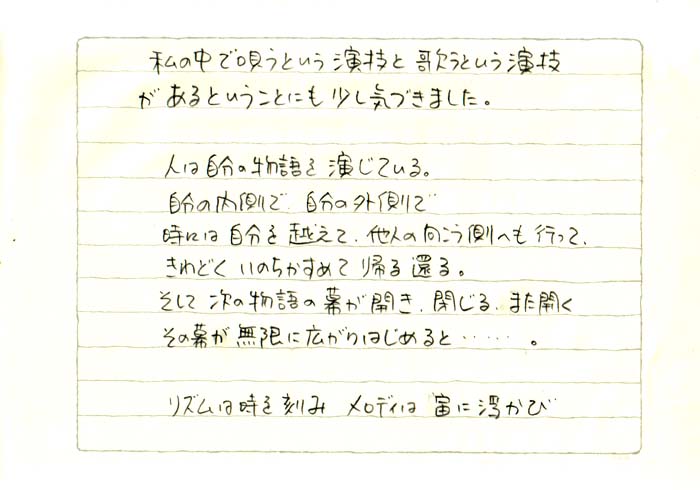 私の中で唄うという演技と歌うという演技
があるということにも少し気づきました。
人は自分の物語を演じている。
自分の内側で 自分の外側で
時には自分を越えて、他人の向こう側へも行って、
きわどくいのちかすめて帰る還る。
そして次の物語の幕が開き、閉じる、また開く
その幕が無限に広がりはじめると……。
リズムは時を刻み メロディは宙に浮かび